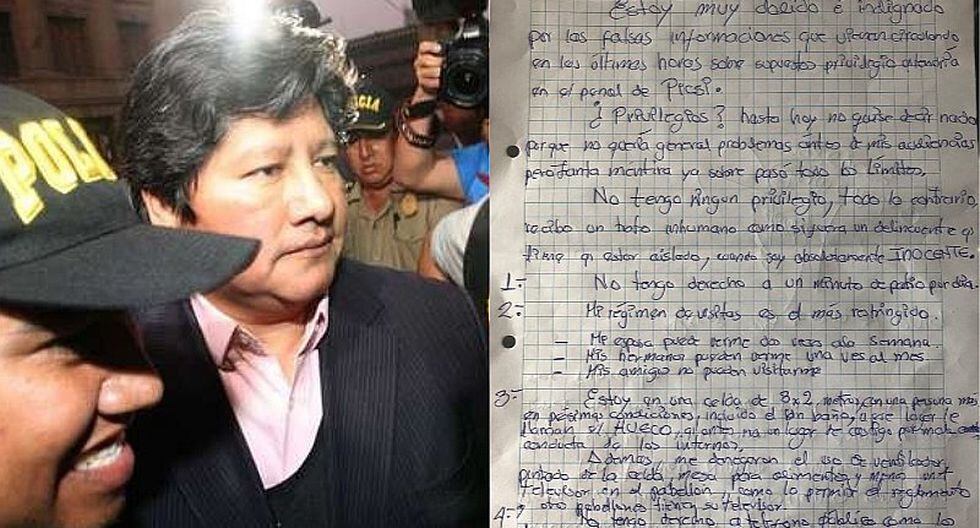 POLI
ICIA
Estoy muy dolido e indignado
por las falsas informaciones que vienen circulando
en las últimas horas sobre supuestos privilegio
en el penal de Picsi.
¿Privilegios? hasta hoy no quise decir nada
porque no quería general problemas antes de mis audiencias
pero tanta mentira ya sobre pasó todo los Límites.
No tengo ningun privilegio, todo lo contrario
recibo un trato inhumano como si fuera un delincuente q
tiene q estar aislado, cuando soy absolutamente INOCENTE.
1- No tengo derecho a un minuto de patio por día.
2- Mi régimen de visitas es el más restringido.
- Mi esposa puede verme dos veces a la semana.
- Mis hermanos pueden verme una ves al mes.
- Mis amigos no pueden visitarme
3- Estoy en una celda de 3x2 metros, con una persona mas
en pésimas condiciones, incluido el baño, a ese lugar le
llaman el HUECO, q antes era un lugar de castigo por mala
conducta de los internos.
Además me denegaron el uso de ventilador,
de la celda, mesa para alimentos y menos una
television en el pabellon, como lo permite el reglamento
otro pabellones tienen su televisor.
4- No tengo derecho a teléfono público como lo